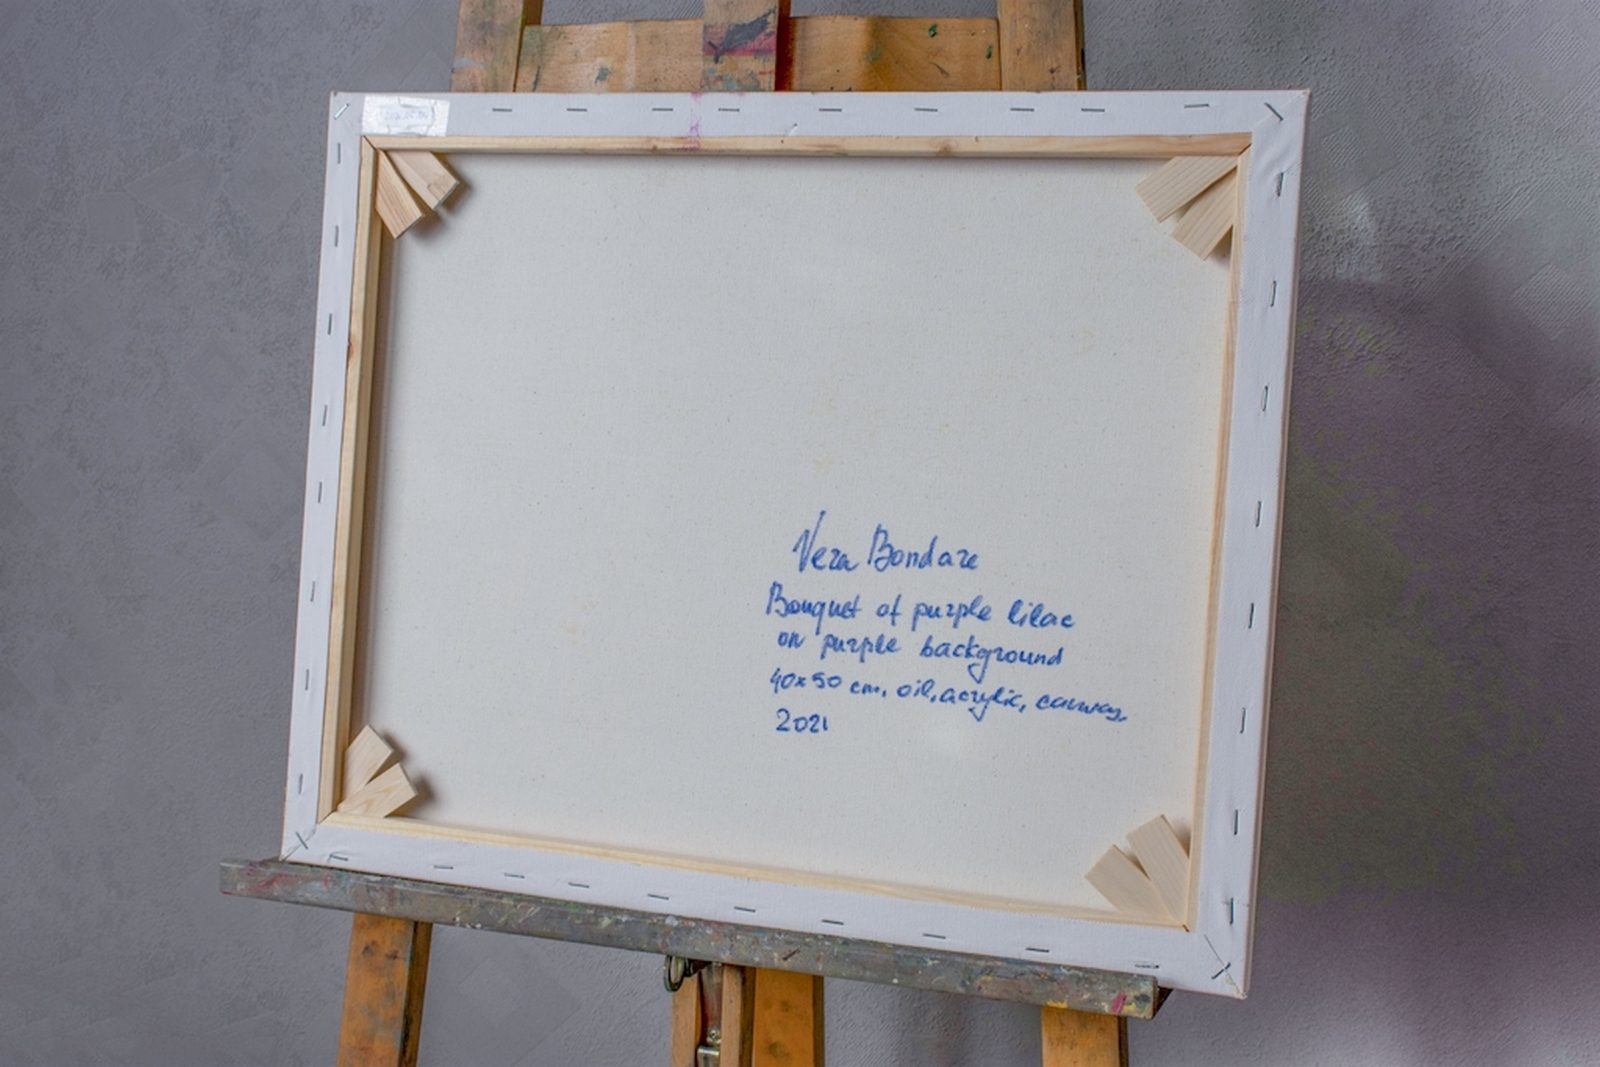 Vera Bondare
Bouquet of purple lilac
on purple background
40x50 cm, oil, acrylic, canvas,
2021